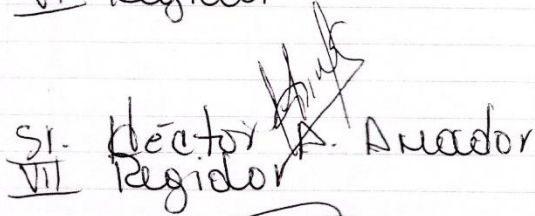 VI Regidor
Sr. Héctor A. Amador
VII Regidor